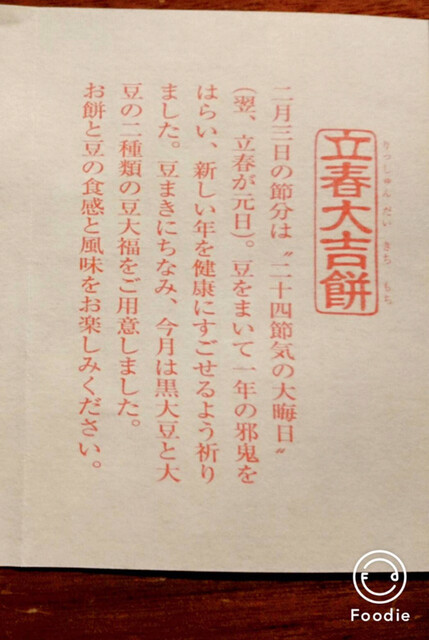 立春大吉餅
りっしゅん だい きち もち
二月三日の節分は〝二十四節気の大晦日〟
(翌、立春が元日)。豆をまいて一年の邪鬼を
はらい、新しい年を健康にすごせるよう祈り
ました。豆まきにちなみ、今月は黒大豆と大
豆の二種類の豆大福をご用意しました。
お餅と豆の食感と風味をお楽しみください。
Foodie